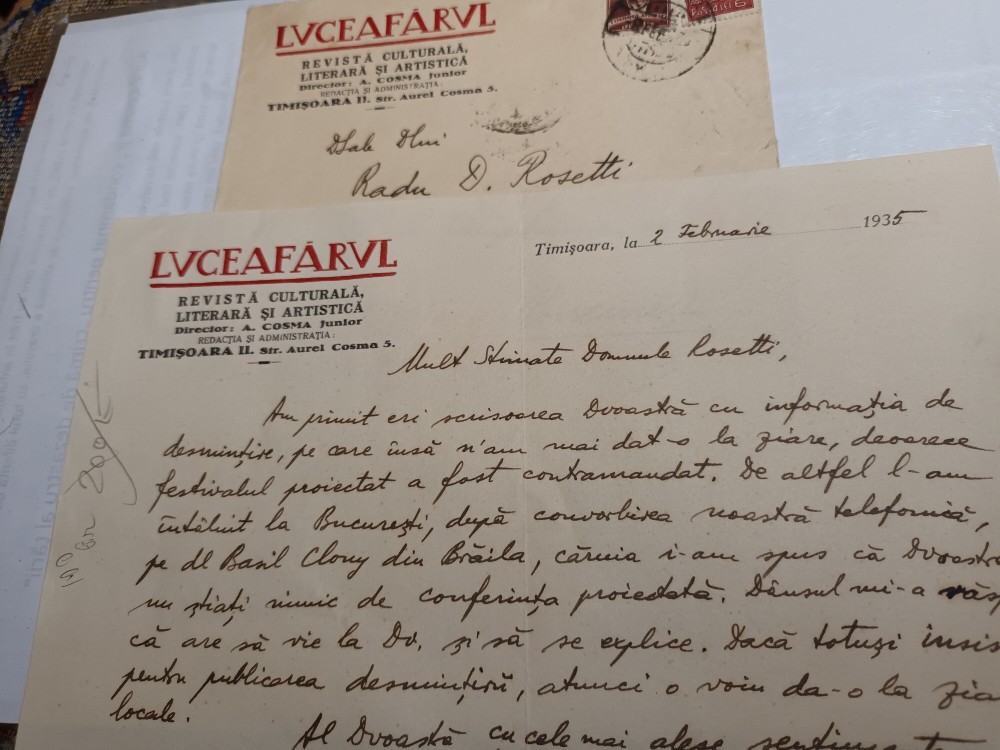 LVCEAFĂRVL
REVISTĂ CULTURALĂ,
LITERARĂ ȘI ARTISTICĂ
Director: A. COSMA Junior
REDACȚIA ȘI ADMINISTRAȚIA:
TIMIȘOARA II. Str. Aurel Cosma 5.
DSale Dlui
Radu D. Rosetti
LVCEAFĂRVL
REVISTĂ CULTURALĂ,
LITERARĂ ȘI ARTISTICĂ
Director: A. COSMA Junior
REDACȚIA ȘI ADMINISTRAȚIA:
TIMIȘOARA II. Str. Aurel Cosma 5.
Timișoara, la 2 Februarie 1935
Mult Stimate Domnule Rosetti,
Am primit eri scrisoarea Dvoastră cu informația de
desmințire, pe care însă n'am mai dat-o la ziare, deoarece
festivalul proiectat a fost contramandat. De altfel l-am
întâlnit la București, după convorbirea noastră telefonică,
pe dl Basil Clony din Brăila, căruia i-am spus că Dvoastră
nu știați nimic de conferința proiectată. Dânsul mi-a răsp
că are să vie la Dv. și să se explice. Dacă totuși insis
pentru publicarea desmințirii, atunci o voiu da-o la zia
locale.
Al Dvoastră cu cele mai alese sentim
200